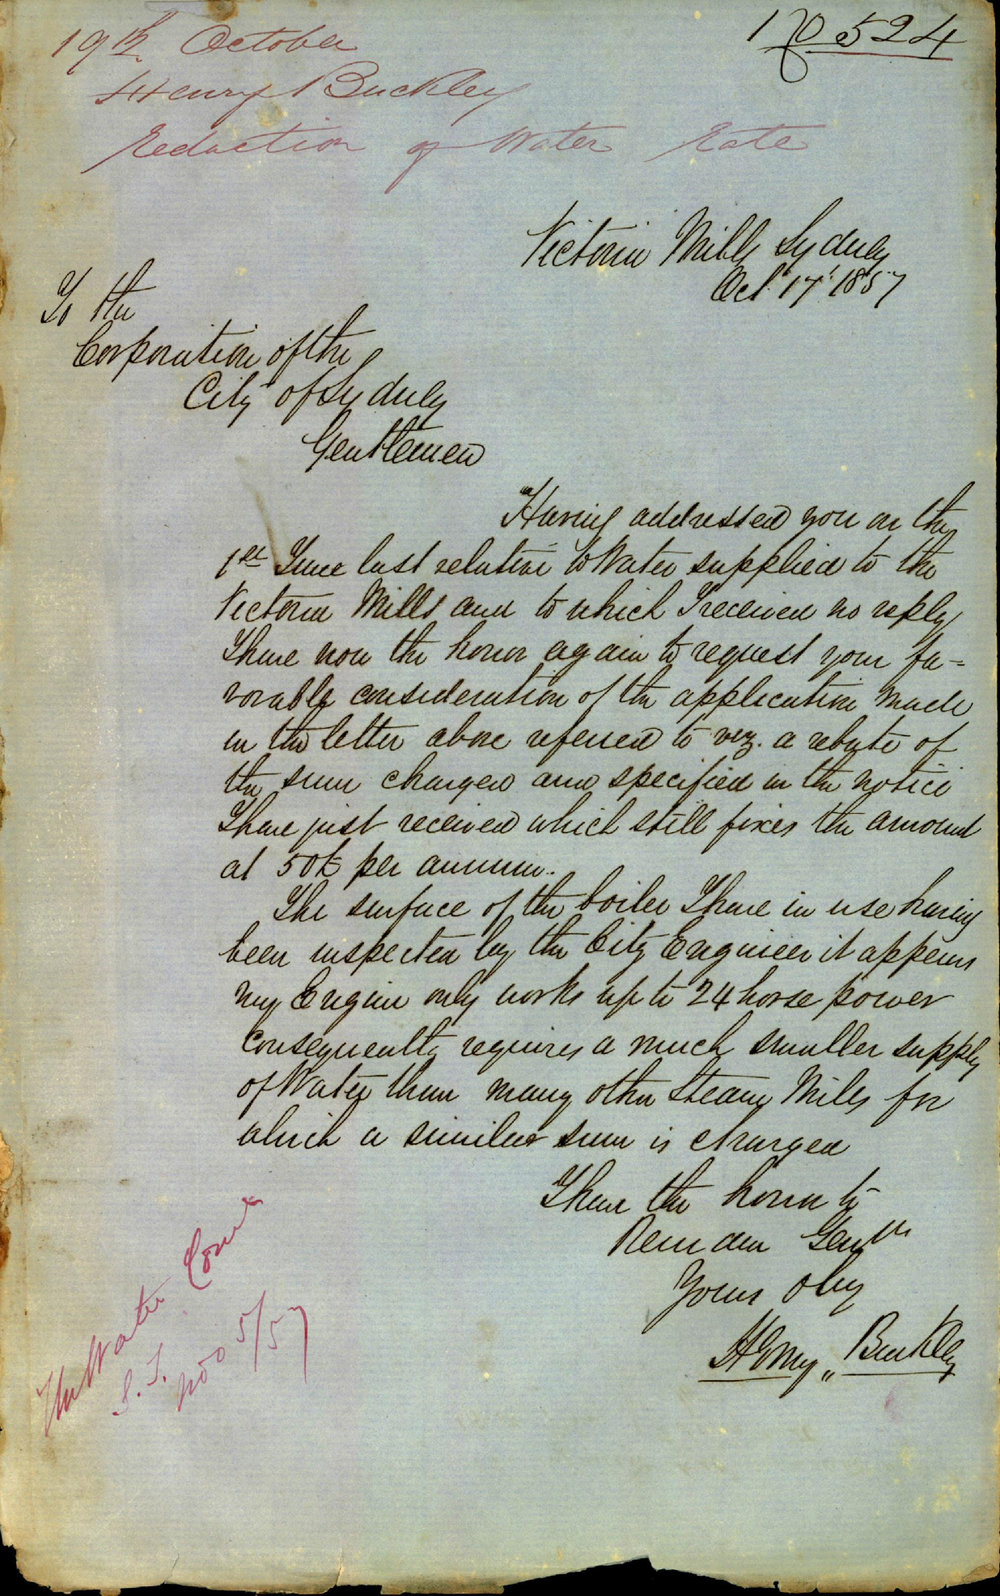 19th October
Henry Buckley
Reduction of Water Rate
No 524
Victoria Mills Sydney
Oct 17 1857
To the
Corporation of the
City of Sydney
Gentlemen
Having addressed you on the
1st June last relative to Water supplied to the
Victoria Mills and to which I received no reply
I have now the honor again to request your fa=
vorable consideration of the application made
in the letter above referred to viz. a rebate of
the sum charged and specified in the notice
I have just received which still fixes the amount
at 50£ per annum.
The surface of the boiler I have in use having
been inspected by the City Engineer it appears
my Engine only works up to 24 horse power
consequently requires a much smaller supply
of Water than many other Steam Mills for
which a similar sum is charged
I have the honor to
Remain Gentn
Yours Oby
Henry Buckley
The Water Come
No 5/57